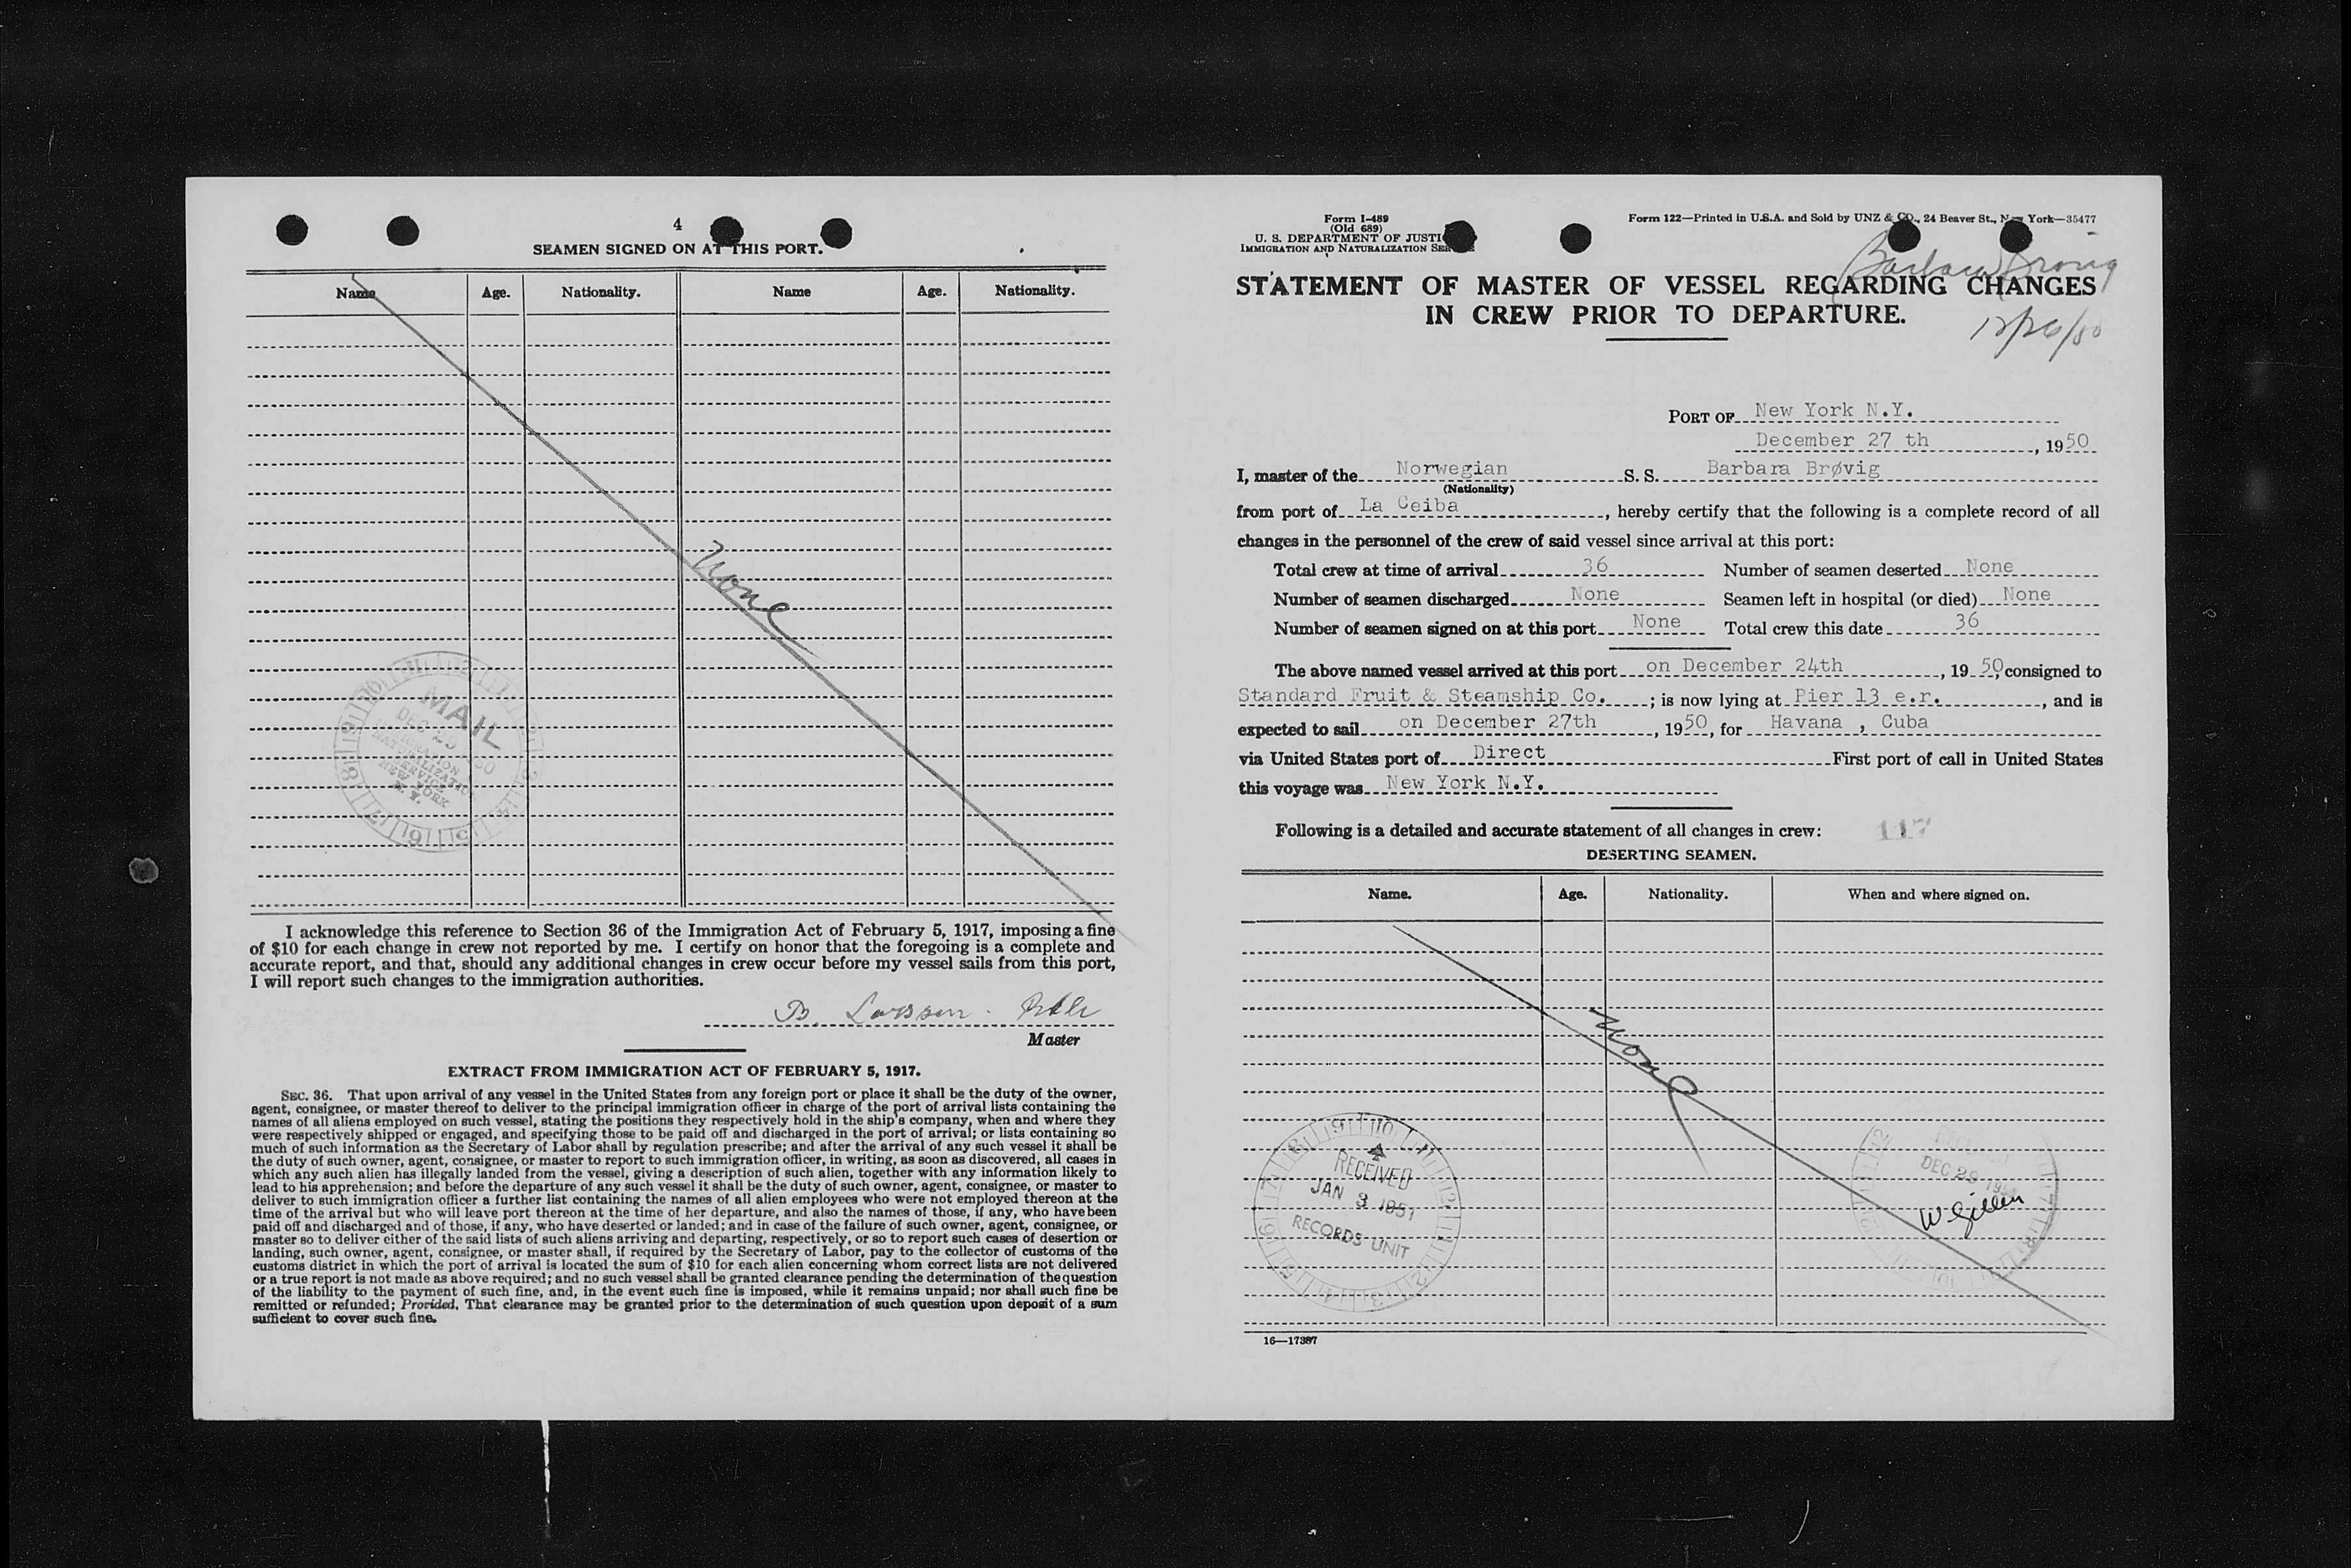 4
SEAMEN SIGNED ON AT THIS PORT.
Name Age. Nationality. Name Age. Nationality.
None
MAIL
DEC 29
NATURALIZATION
SERVICE
NEW YORK
N. Y.
I acknowledge this reference to Section 36 of the Immigration Act of February 5, 1917, imposing a fine
of $10 for each change in crew not reported by me. I certify on honor that the foregoing is a complete and
accurate report, and that, should any additional changes in crew occur before my vessel sails from this port,
I will report such changes to the immigration authorities.
B. Larssen
Master
EXTRACT FROM IMMIGRATION ACT OF FEBRUARY 5, 1917.
SEC. 36. That upon arrival of any vessel in the United States from any foreign port or place it shall be the duty of the owner,
agent, consignee, or master thereof to deliver to the principal immigration officer in charge of the port of arrival lists containing the
names of all aliens employed on such vessel, stating the positions they respectively hold in the ship's company, when and where they
were respectively shipped or engaged, and specifying those to be paid off and discharged in the port of arrival; or lists containing so
much of such information as the Secretary of Labor shall by regulation prescribe; and after the arrival of any such vessel it shall be
the duty of such owner, agent, consignee, or master to report to such immigration officer, in writing, as soon as discovered, all cases in
which any such alien has illegally landed from the vessel, giving a description of such alien, together with any information likely to
lead to his apprehension; and before the departure of any such vessel it shall be the duty of such owner, agent, consignee, or master to
deliver to such immigration officer a further list containing the names of all alien employees who were not employed thereon at the
time of the arrival but who will leave port thereon at the time of her departure, and also the names of those, if any, who have been
paid off and discharged and of those, if any, who have deserted or landed; and in case of the failure of such owner, agent, consignee, or
master so to deliver either of the said lists of such aliens arriving and departing, respectively, or so to report such cases of desertion or
landing, such owner, agent, consignee, or master shall, if required by the Secretary of Labor, pay to the collector of customs of the
customs district in which the port of arrival is located the sum of $10 for each alien concerning whom correct lists are not delivered
or a true report is not made as above required; and no such vessel shall be granted clearance pending the determination of the question
of the liability to the payment of such fine, and, in the event such fine is imposed, while it remains unpaid; nor shall such fine be
remitted or refunded; Provided, That clearance may be granted prior to the determination of such question upon deposit of a sum
sufficient to cover such fine.
Form I-489
(Old 689)
U. S. DEPARTMENT OF JUSTI
IMMIGRATION AND NATURALIZATION SER
Form 122—Printed in U.S.A. and Sold by UNZ & CO., 24 Beaver St., New York—35477
Barbara Brovig
12/26/50
STATEMENT OF MASTER OF VESSEL REGARDING CHANGES
IN CREW PRIOR TO DEPARTURE.
PORT OF New York N.Y.
December 27 th, 1950
I, master of the Norwegian S. S. Barbara Brøvig
(Nationality)
from port of La Ceiba, hereby certify that the following is a complete record of all
changes in the personnel of the crew of said vessel since arrival at this port:
Total crew at time of arrival 36 Number of seamen deserted None
Number of seamen discharged None Seamen left in hospital (or died) None
Number of seamen signed on at this port None Total crew this date 36
The above named vessel arrived at this port on December 24th, 19 50, consigned to
Standard Fruit & Steamship Co. ; is now lying at Pier 13 e.r., and is
expected to sail on December 27th, 1950, for Havana , Cuba
via United States port of Direct First port of call in United States
this voyage was New York N.Y.
Following is a detailed and accurate statement of all changes in crew: 117
DESERTING SEAMEN.
Name. Age. Nationality. When and where signed on.
None
RECEIVED
JAN 3 1951
RECORDS UNIT
DEC 29
W Gillen
16—17387